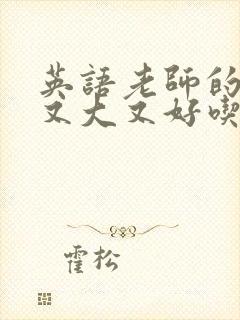 英語老師的
又大又好喫
霍松